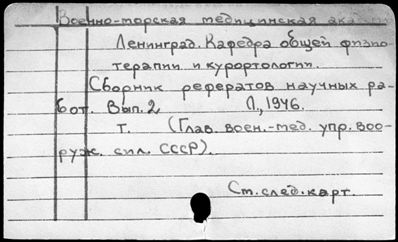 Военно-морская медицинская акаде
Ленинград. Кафедра общей физио-
терапии и курортологии.
Сборник рефератов научных ра-
бот. Вып. 2 Л., 1946.
т. (Глав. воен.-мед. упр. воо-
руж. сил. СССР).
Ст. след. карт.